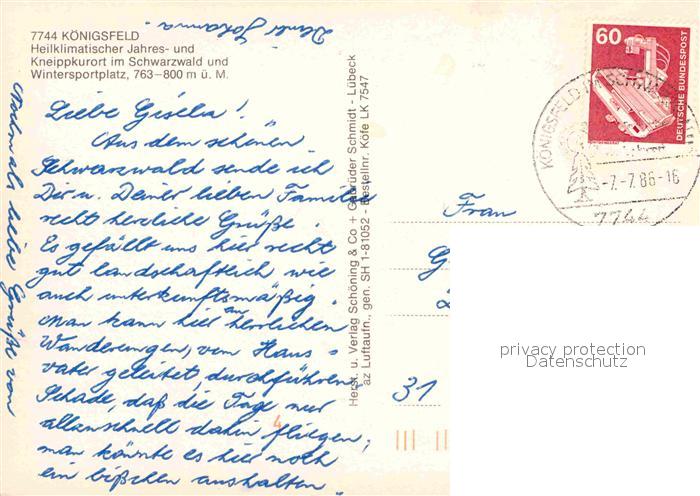 7744 KÖNIGSFELD
Heilklimatischer Jahres- und
Kneippkurort im Schwarzwald und
Wintersportplatz, 763–800 m ü. M.
Liebe Gisela!
Aus dem schönen
Schwarzwald sende ich
Dir u. Deiner lieben Familie
recht herzliche Grüße.
Es gefällt uns hier recht
gut landschaftlich wie
auch unterkunftsmäßig.
Man kann hier an herrlichen
Wanderungen, vom Haus-
vater geleitet, durchführen.
Schade, daß die Tage nur
allzuschnell dahin fliegen;
man könnte es hier noch
ein bißchen aushalten.
Nochmals liebe Grüße von
Deiner Johanna.
Herst. u. Verlag Schöning & Co + Gebrüder Schmidt - Lübeck
az Luftaufn., gen. SH 1-81052 - Bestellnr. Köfe LK 7547
60
DEUTSCHE BUNDESPOST
KÖNIGSFELD
-7.-7.86-16
7744
Frau
G
31
4
privacy protection
Datenschutz